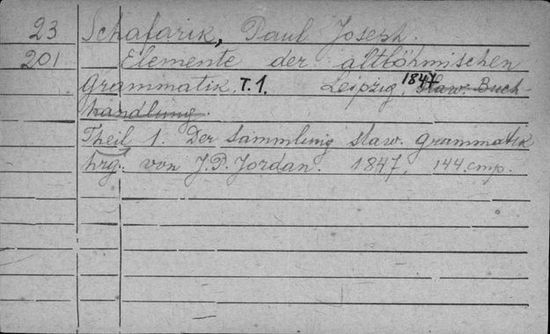 23 Schafarik, Paul Joseph.
201 Elemente der altböhmischen
Grammatik. T.1. Leipzig, 1847 Slaw. Buch-
handlung.
Theil 1. Der Sammlung slaw. Grammatik
hrg. von J.P. Jordan. 1847. 144 стр.